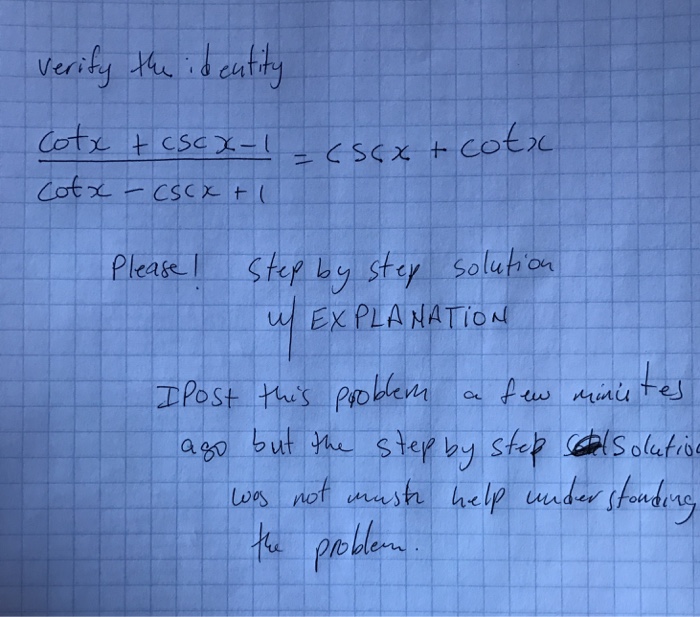 verify the identity
cotx + cscx-1
cotx - cscx + 1
= cscx + cotx
Please! Step by step solution
w/ EXPLANATION
I Post this problem a few minutes
ago but the step by step solutio
was not mush help understanding
the problem.